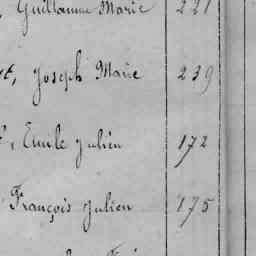 , Guillaume Marie 221
t, Joseph Marie 239
, Emile Julien 172
François Julien 175